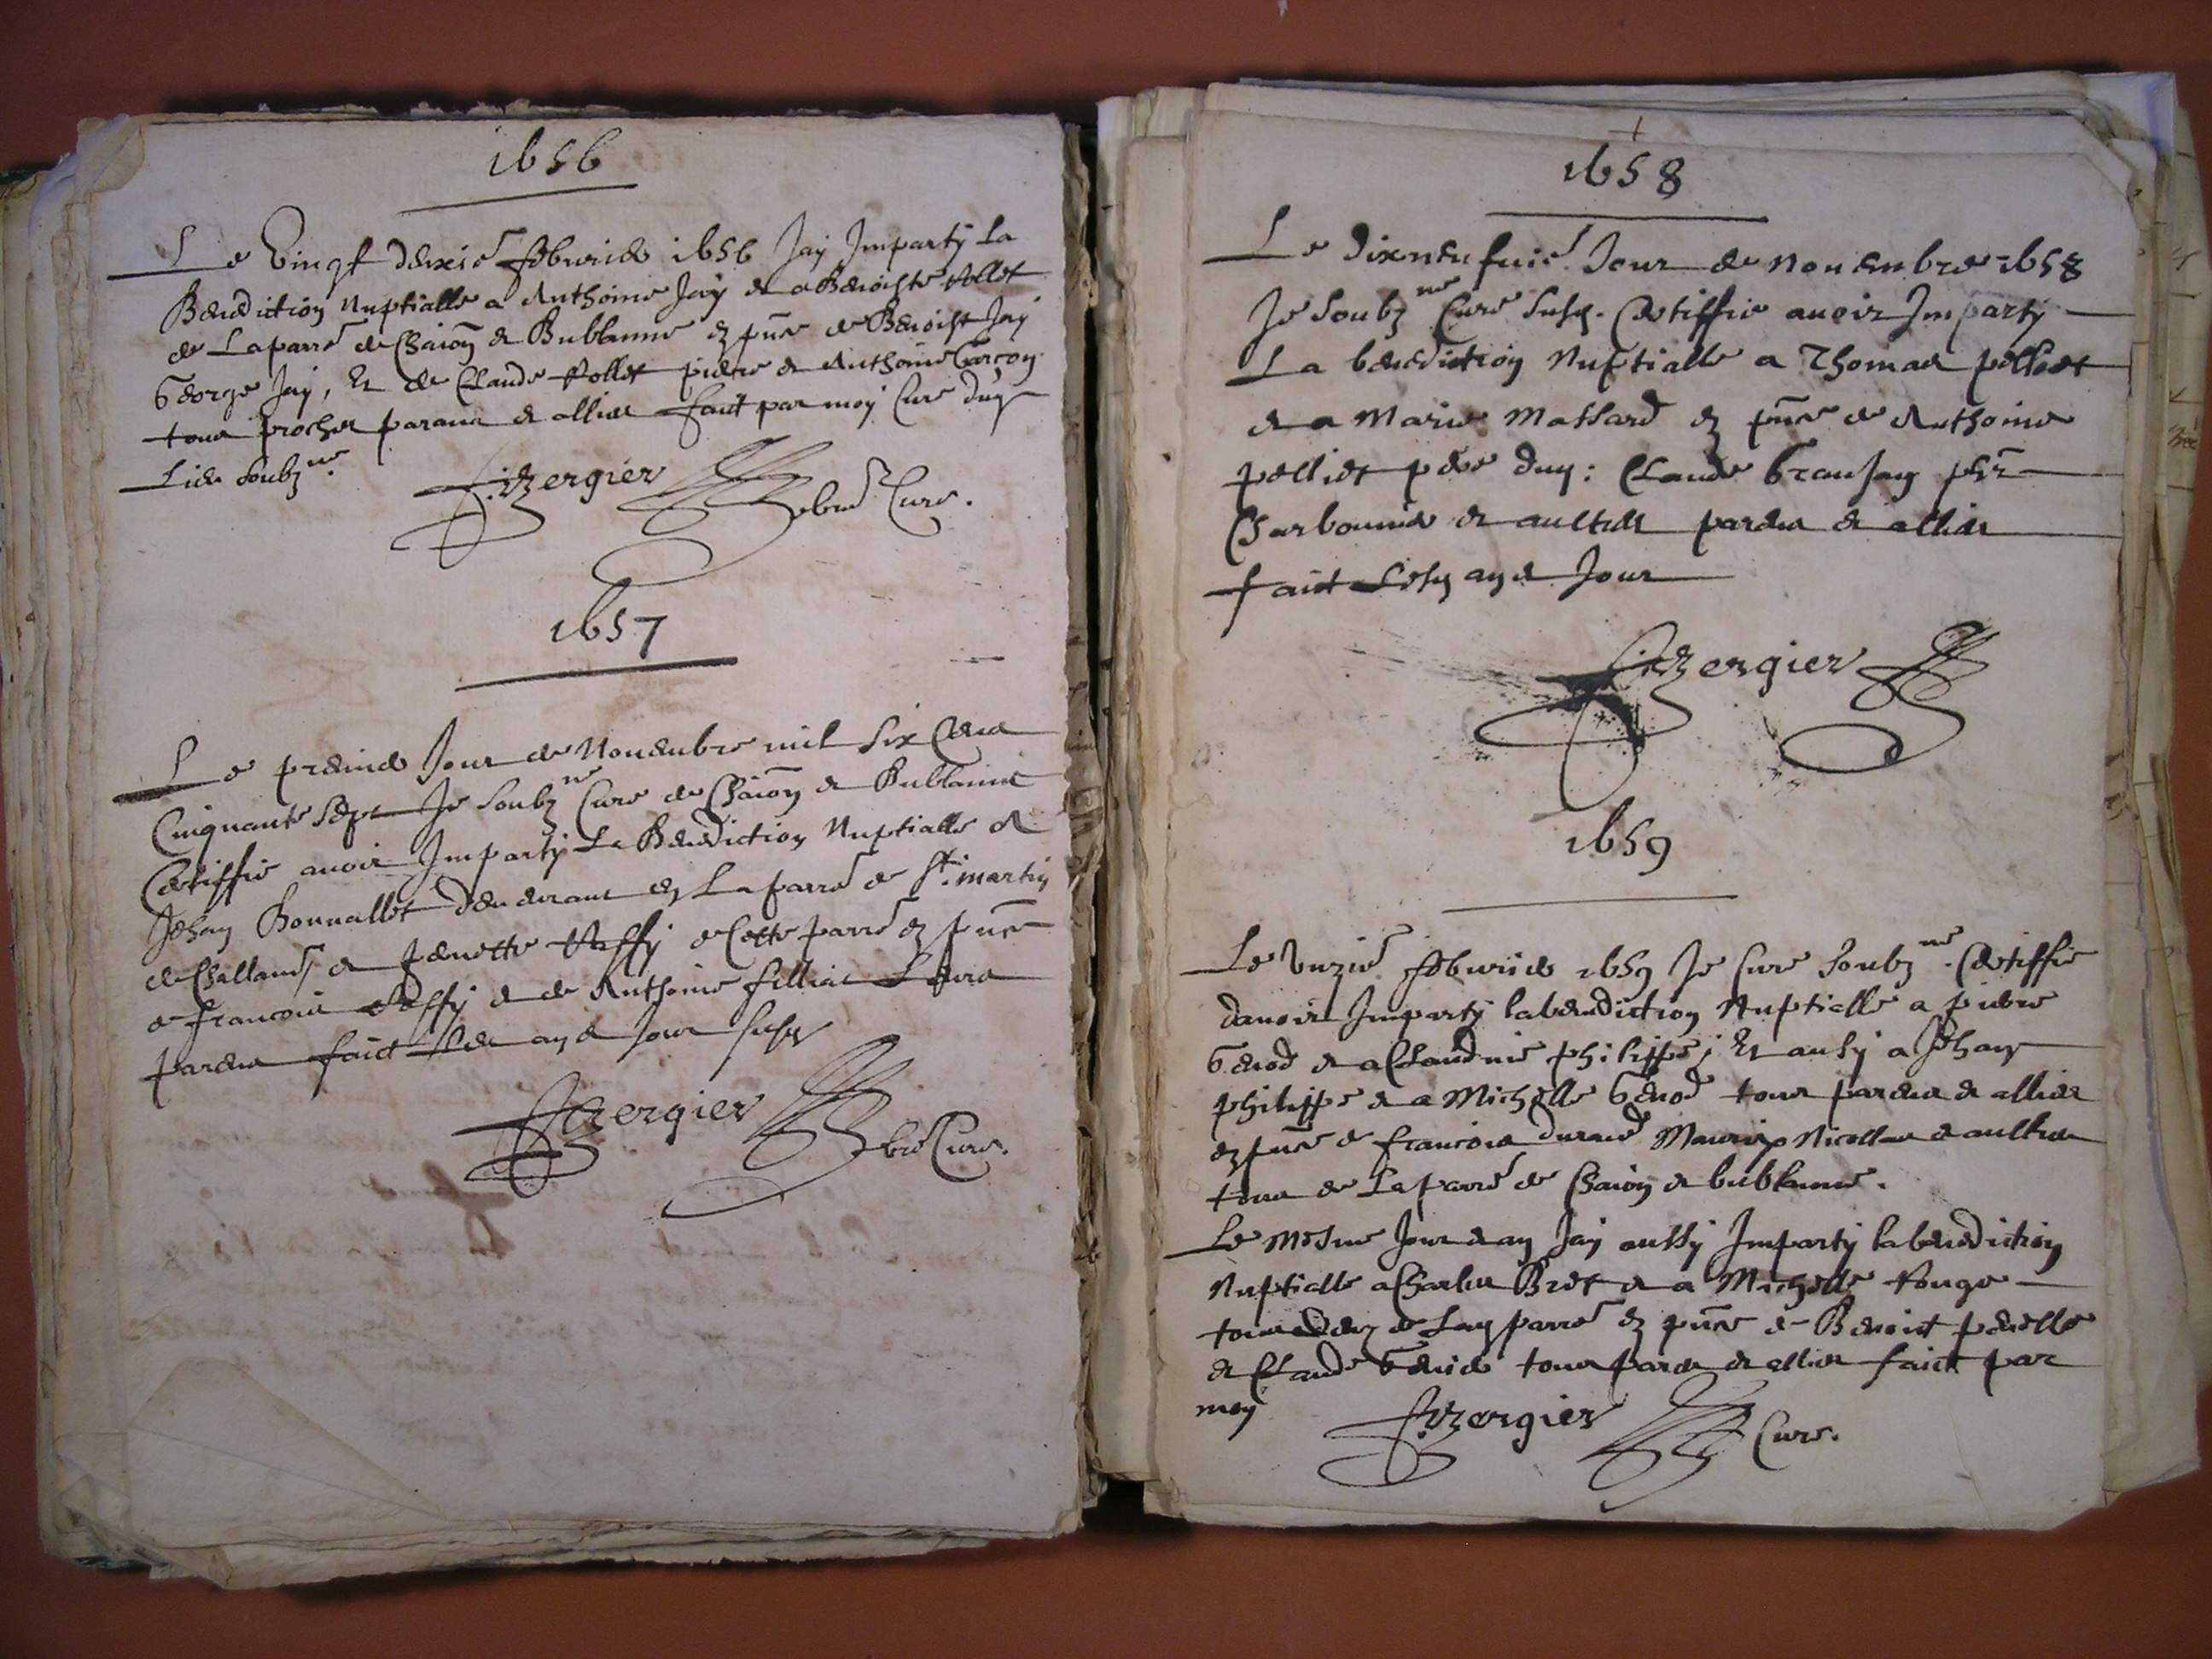 1656
Le Vingt deuxie feburier 1656 Jay Imparty La
Benediction Nuptialle a Anthoine Jay et a Benoiste Rollet
de La parre de Chaion et Bublanne en pnce de Benoist Jay
George Jay, Et de Claude Rollet pierre et Anthoine Garcon
tous proches parans et allies faict par moy Cure dud
Lieu soubzne
Bergier Cure.
1657
Le premier Jour de Novembre mil six Cens
Cinquante sept Je soubzne Cure de Chaion et Bublanne
Certiffie avoir Imparty La Benediction Nuptialle a
Jehan Bonnallet demeurant en La parre de St. martin
de Challand et Jenette Raffy de Cette parre en pnce
de francois Raffy et de Anthoine filliat Leurs
parens faict Les an et Jour susd
Bergier Cure.
1658
Le dixneufuie Jour de Novembre 1658
Je soubzne Cure susd. Certiffie avoir Imparty
La benediction Nuptialle a Thomas pelliet
et a Marie Massard en pnce de Anthoine
pelliet pere dud: Claude Granjay
Charbounier et aultres parens et allies
faict Lesd an et Jour
Bergier
1659
Le Unzie feburier 1659 Je Cure soubzne. Certiffie
davoir Imparty la benediction Nuptialle a pierre
Genod et a Claudine philippe; Et ausy a Jehan
philippe et a Michelle Genod tous parens et allies
en pnce de francois durand Nicollas et aultres
tous de La parre de Chaion et bublanne.
Le mesme Jour et an Jay aussy Imparty la benediction
Nuptialle a Charles Bret et a Michelle Ronge
tous deux de Lad parre en pnce de Benoict perelle
et Claude tous parens et allies faict par
moy
Bergier Cure.